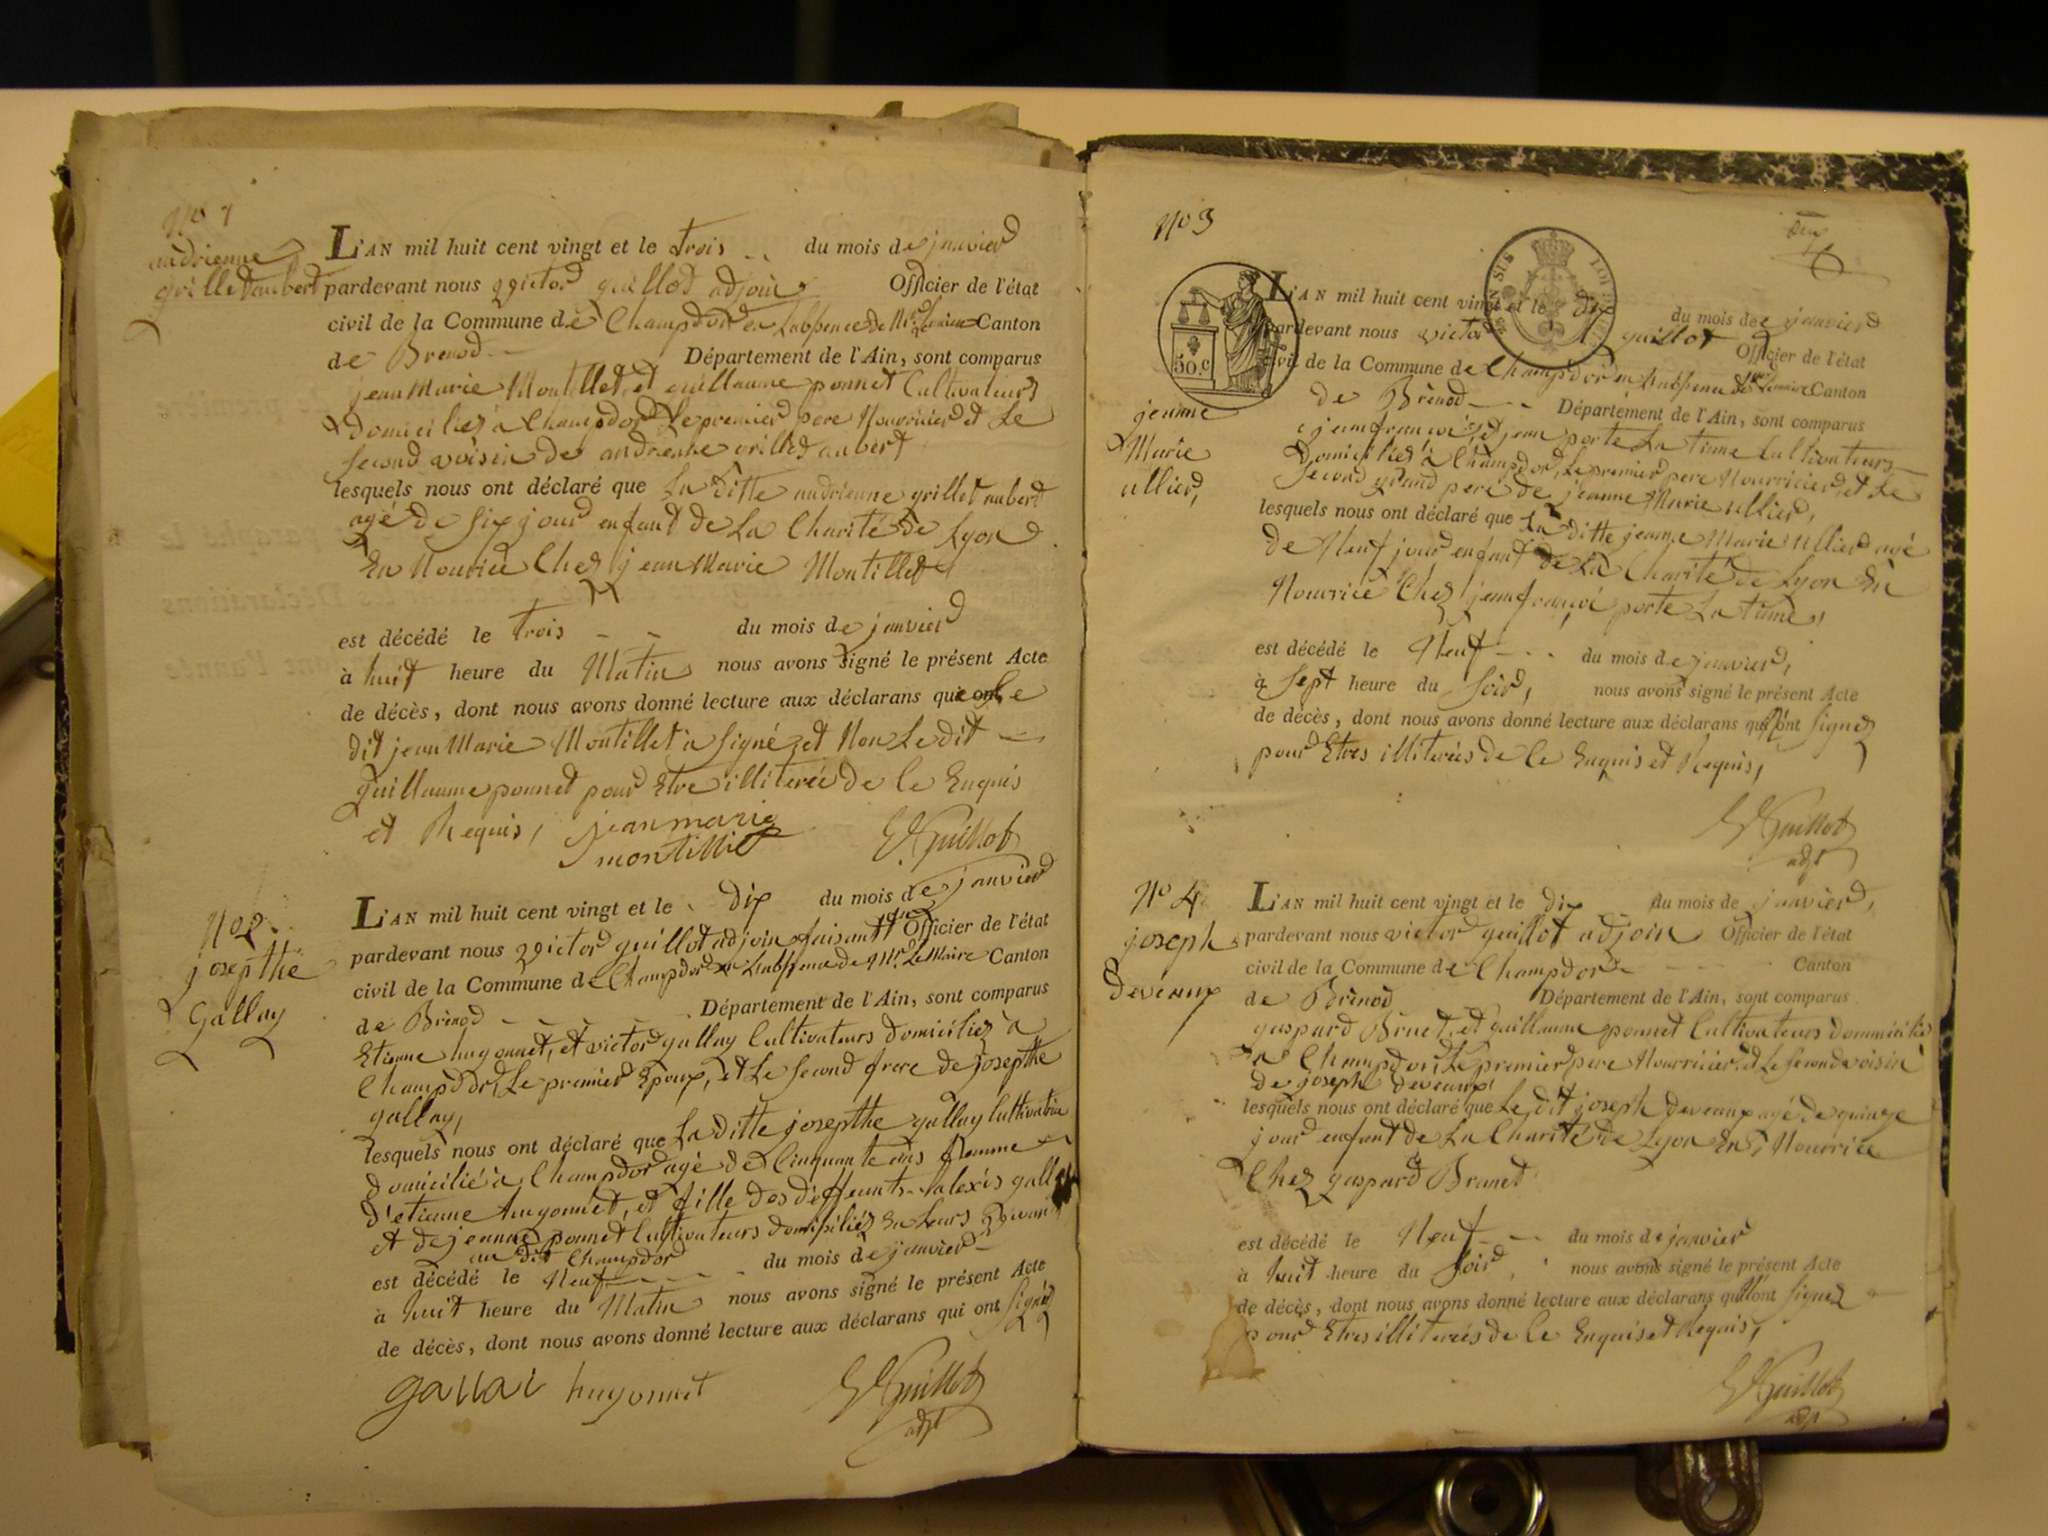 No 1
andrienne
grillet aubert
L'AN mil huit cent vingt et le trois du mois de janvier
pardevant nous victor guillot adjoin Officier de l'état
civil de la Commune de Champdor en Labsence de Mr Le maire Canton
de Brenod Département de l'Ain, sont comparus
jean Marie Montillet, et guillaume ponnet Cultivateurs
domiciliez à Champdor Le premier pere Nourricier et Le
second voisin de andrienne grillet aubert
lesquels nous ont déclaré que La ditte andrienne grillet aubert
agé de six jour enfant de La Charité de Lyon
En Nourice Chez jean Marie Montillet
est décédé le trois du mois de janvier
à huit heure du Matin nous avons signé le présent Acte
de décès, dont nous avons donné lecture aux déclarans que Le
dit jean Marie Montillet à signé et Non Le dit
guillaume ponnet pour Etre illiterée de Ce Enquis
et Requis, jean marie
montillet
V. Guillot
No 2
josepthe
Gallay
L'AN mil huit cent vingt et le dix du mois de janvier
pardevant nous victor guillot adjoin faisant Officier de l'état
civil de la Commune de Champdor en Labsence de Mr Le Maire Canton
de Brénod Département de l'Ain, sont comparus
Etienne hugonnet, et victor gallay Cultivateurs domiciliez à
Champdor, Le premier Epoux, et Le second frere de josepthe
gallay,
lesquels nous ont déclaré que La ditte josepthe gallay Cultivatrice
domicilié à Champdor agé de Cinquante ans femme
d'etienne hugonnet, et fille des deffeunts alexis gallay
et de jeanne ponnet Cultivateurs domiciliéz En Leurs vivant
au dit Champdor
est décédé le Neuf du mois de janvier
à huit heure du Matin nous avons signé le présent Acte
de décès, dont nous avons donné lecture aux déclarans qui ont signés
gallai hugonnet V Guillot
adjt
No 3
50.c
jeanne
Marie
ullier,
L'AN mil huit cent vingt et le dix du mois de janvier
pardevant nous victor guillot Officier de l'état
civil de la Commune de Champdor en Labsence de Mr Le maire Canton
de Brénod Département de l'Ain, sont comparus
jean françoi, et jean porte La tinne Cultivateurs
Domiciliéz à Champdor, Le premier pere Nourricier, et Le
second grand pere de jeanne Marie ullier,
lesquels nous ont déclaré que La ditte jeanne Marie ullier agé
de Neuf jour enfant de La Charité de Lyon En
Nourrice Chez jean françoi porte La tinne,
est décédé le Neuf du mois de janvier,
à sept heure du soir, nous avons signé le présent Acte
de décès, dont nous avons donné lecture aux déclarans qui n'ont signez
pour Etres illiterées de Ce Enquis et Requis,
V Guillot
adjt
No 4
joseph
deveaux
L'AN mil huit cent vingt et le dix du mois de janvier,
pardevant nous victor guillot adjoin Officier de l'état
civil de la Commune de Champdor Canton
de Brénod Département de l'Ain, sont comparus
gaspard Brunet, et guillaume ponnet Cultivateurs dommiciliés
à Champdor, Le premier pere Nourricier et Le second voisin
de joseph deveaux
lesquels nous ont déclaré que Le dit joseph deveaux agé de quinze
jour enfant de La Charité de Lyon En Nourrice
Chez gaspard Brunet
est décédé le Neuf du mois de janvier
à huit heure du soir, nous avons signé le présent Acte
de décès, dont nous avons donné lecture aux déclarans qui n'ont signez
pour Etres illiterées de Ce Enquis et Requis,
V Guillot
adjt